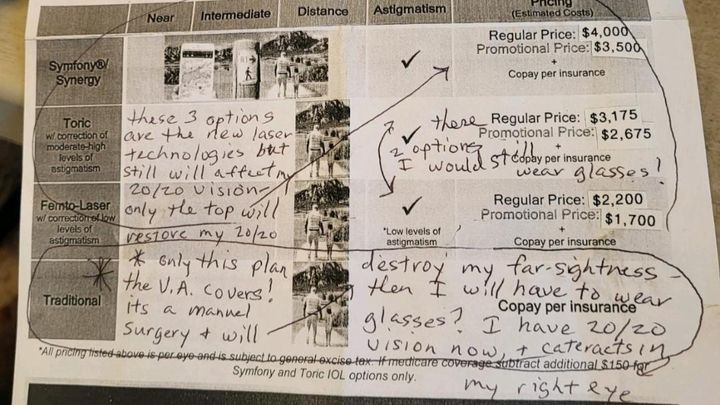 Near Intermediate Distance Astigmatism Pricing
(Estimated Costs)
Symfony®/
Synergy
Regular Price: $4,000
Promotional Price: $3,500
+
Copay per insurance
Toric
w/ correction of
moderate-high
levels of
astigmatism
these 3 options
are the new laser
technologies but
still will affect my
20/20 vision-
only the top will
restore my 20/20
these
2 options still
I would
wear glasses!
Regular Price: $3,175
Promotional Price: $2,675
+
Copay per insurance
Femto-Laser
w/ correction of low
levels of
astigmatism
*Low levels of
astigmatism
Regular Price: $2,200
Promotional Price: $1,700
+
Copay per insurance
Traditional
* only this plan
the V.A. covers!
its a manuel
Surgery + will
destroy my far-sightness
then I will have to wear
Copay per insurance
glasses? I have 20/20
vision now, + cateracts in
my right eye
*All pricing listed above is per eye and is subject to general excise tax. If medicare coverage subtract additional $150 for
Symfony and Toric IOL options only.